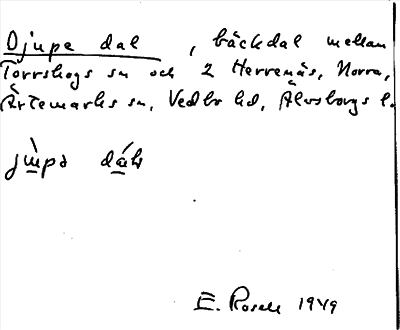 Djupe dal, bäckdal mellan
Torrskogs sn och 2 Herrenäs, Norra,
Ärtemarks sn, Vedbo hd, Älvsborgs l.
E. Rosell 1949